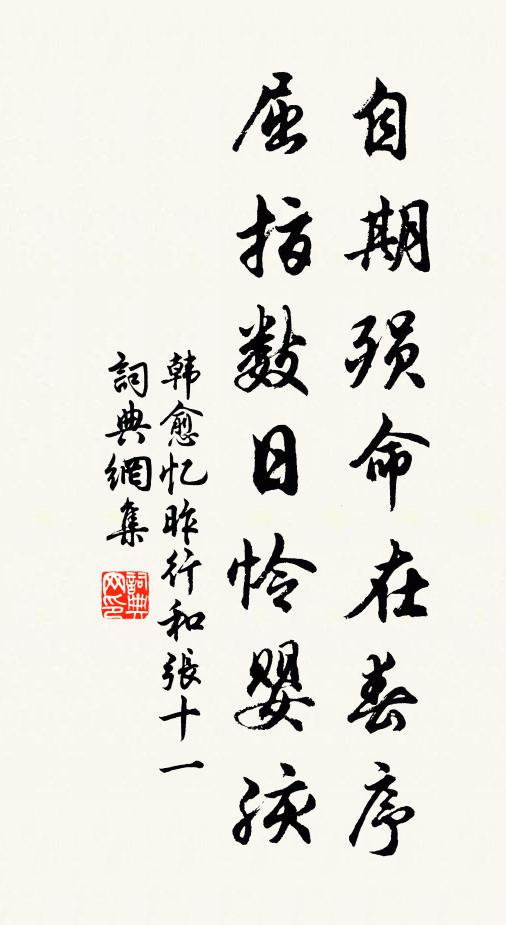 自期殒命在春序
屈指数日怜婴孩
韩愈忆昨行和張十一
詞典網集
詞典
网印